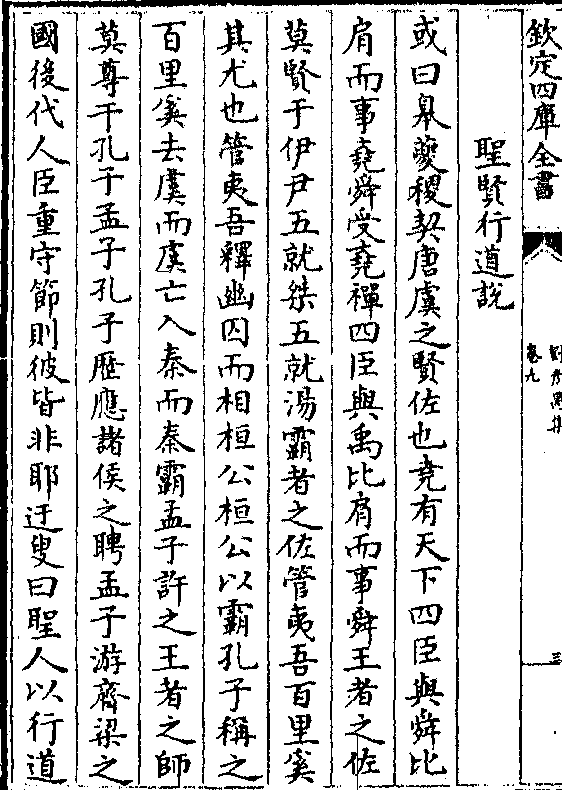 欽定四庫全書
卷九
三
聖賢行道說
或曰臯䕫稷契唐虞之賢佐也堯有天下四臣與舜比
肩而事堯舜受堯禪四臣與禹比肩而事舜王者之佐
莫賢于伊尹五就桀五就湯霸者之佐管夷吾百里奚
其尤也管夷吾釋幽囚而相桓公桓公以霸孔子稱之
百里奚去虞而虞亡入秦而秦霸孟子許之王者之師
莫尊于孔子孟子孔子歴應諸侯之聘孟子游齊梁之
國後代人臣重守節則彼皆非耶迂叟曰聖人以行道